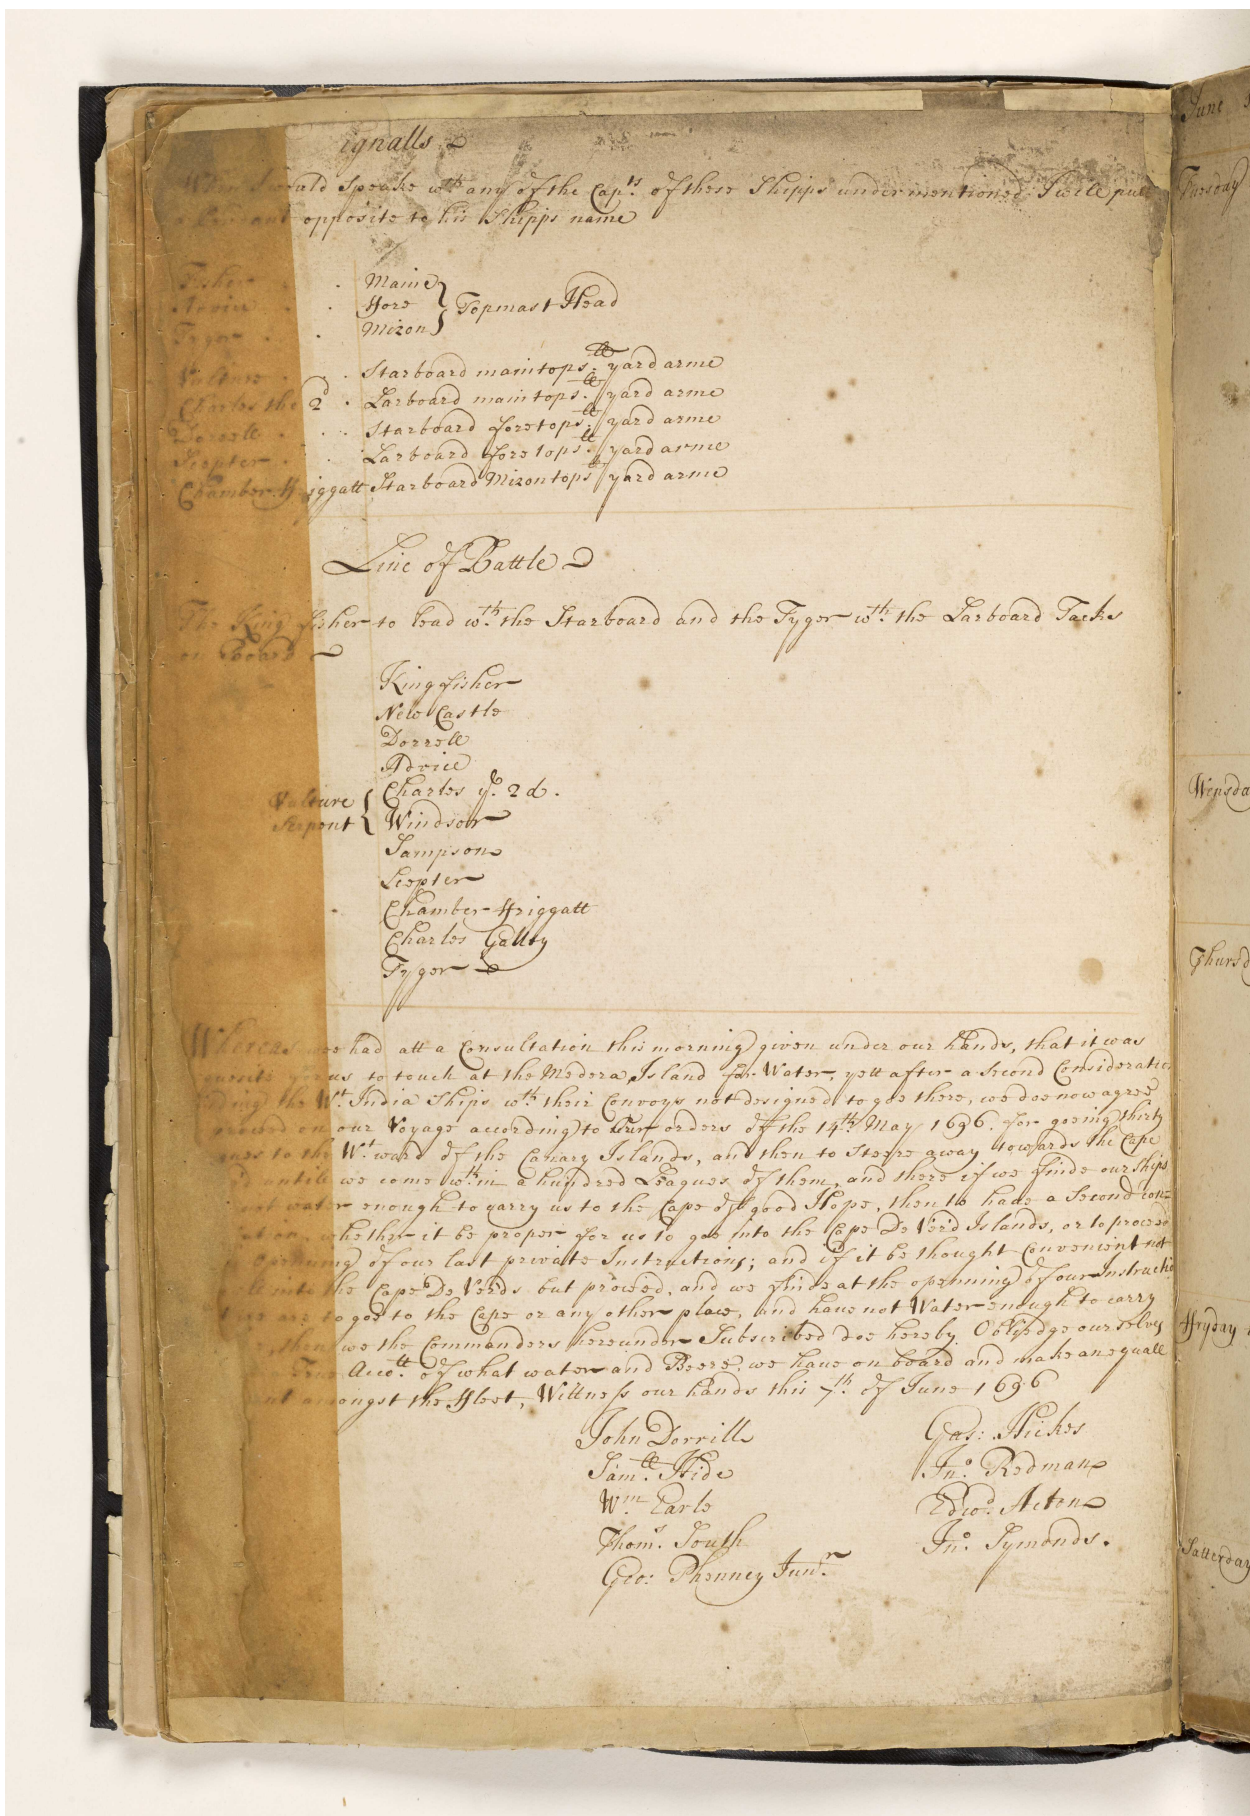 ignalls
When I would Speake wth any of the Capts. of these Shipps undermentioned I will pull
opposite to his Shipps name
Fisher . . Maine
Advice . . Fore } Topmast Head
Tyger . . Mizon
Vulture . . Starboard maintopsll. yard arme
Charles the 2d . Larboard maintopsll. yard arme
Dorrell . . Starboard foretopsll. yard arme
Scepter . . Larboard foretopsll. yard arme
Chamber Friggatt Starboard Mizontopsll yard arme
Line of Battle
The Kingfisher to lead wth. the Starboard and the Tyger wth. the Larboard Tacks
on Board
Kingfisher
New Castle
Dorrell
Advice
Charles ye. 2d.
Vulture
Serpent { Windsor
Sampson
Scepter
Chamber Friggatt
Charles Galley
Tyger
Whereas wee had att a Consultation this morning given under our hands, that it was
us to touch at the Madera Island for Water, yett after a Second Consideration
the Wt. India Ships wth. their Convoys not designed to goe there, we doe now agree
proceed on our Voyage according to Our orders of the 14th. May 1696. for going thirty
to the Wt.ward of the Canary Islands, and then to Steere away towards the Cape
untill we come wth.in a hundred Leagues of them, and there if we finde our Ships
not water enough to carry us to the Cape of good Hope, then to have a Second con=
whether it be proper for us to goe into the Cape De Verd Islands, or to proceed
openning of our last private Instructions; and if it be thought Convenient not
into the Cape De Verds but proceed, and we finde at the openning of our Instructio
are to goe to the Cape or any other place, and have not Water enough to carry
then we the Commanders hereunder Subscribed doe hereby Oblidge ourselves
True Accott. of what water and Beere we have on board and make an equall
amongst the Fleet, Wittness our hands this 7th. of June 1696
John Dorrill Gas: Hickes
Samll. Hide Jno. Redman
Wm Earle Edwd. Acton
Thoms. South Jno. Symonds.
Geo: Phenney Junr.
June
Tuesday
Wensda
Thursd
Fryday
Satterday